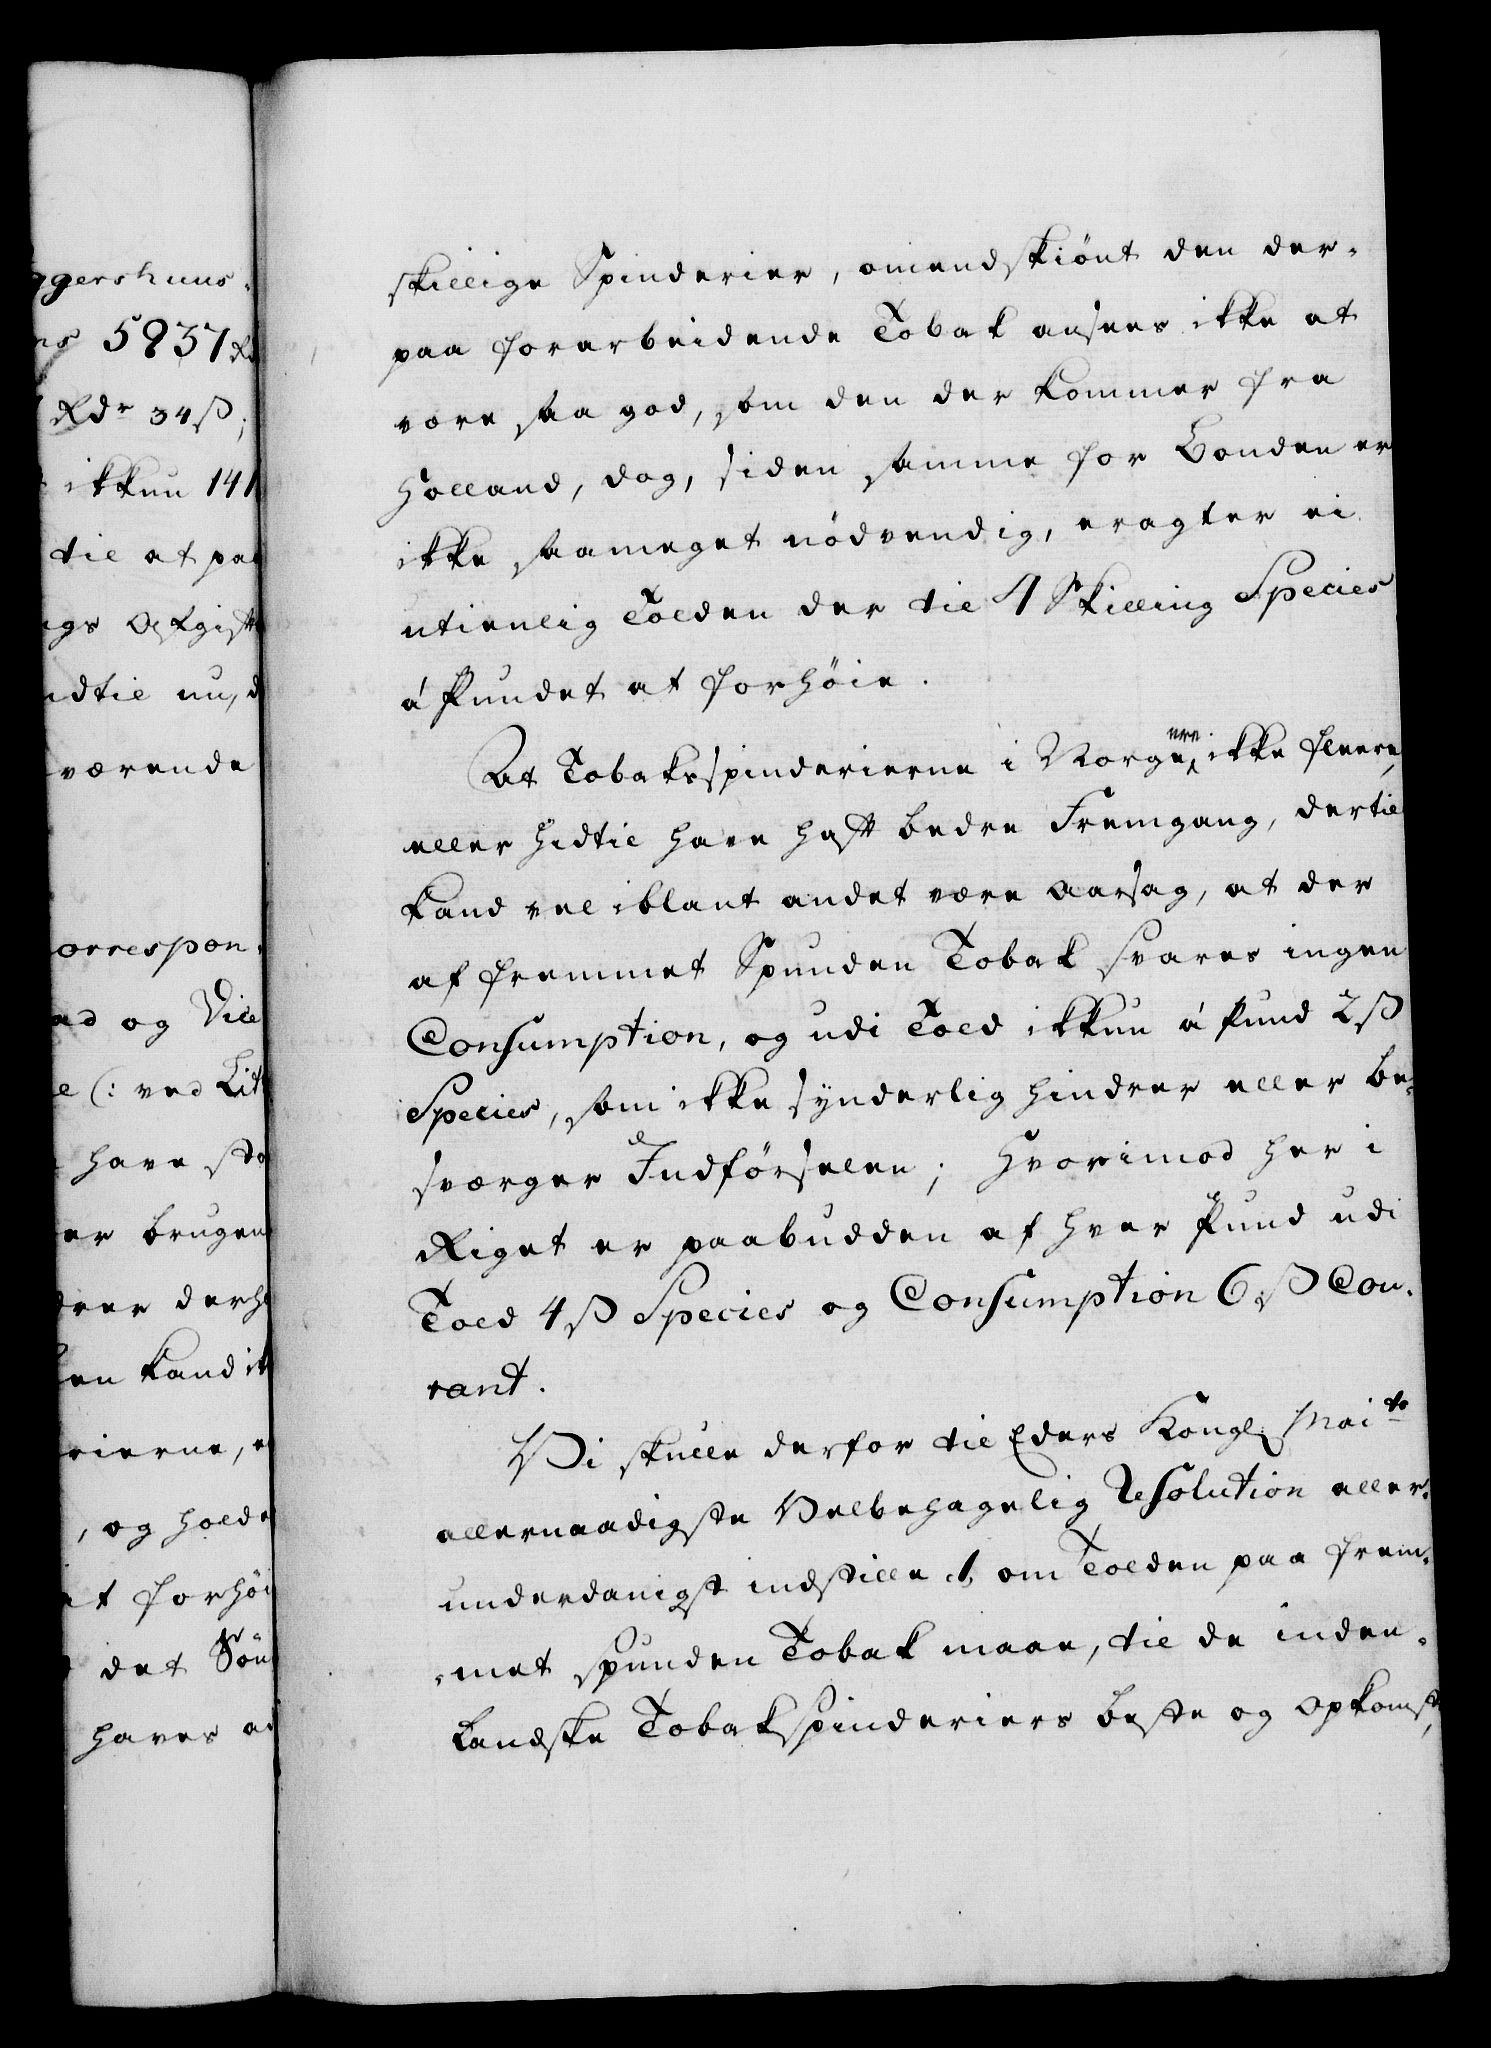 ggershuus-
ns 5837 Rd
Rdr 34ß;
ikkun 141
til at paa
ngs Afgift
ndtil nu, d
værende
orrespon-
ad og Vice
e (: ved Lit
have sto
er brugen
drer derh
en kand ik
rierne, e
, og holde
at forhöi
det Sön
haves a
skillige Spinderier, omendskiönt den der-
paa forarbeidende Tobak ansees ikke at
være saa god, som den der kommer fra
Holland, dog, siden samme for Bonden er
ikke saameget nödvendig, eragter ei
utienlig Tolden der til 4 Skilling Species
á Pundet at forhöie.
At Tobaksspinderierne i Norge ere ikke fleere,
eller hidtil have haft bedre Fremgang, dertil
kand vel iblant andet være Aarsag, at der
af fremmet Spunden Tobak svares ingen
Consumption, og udi Told ikkun á Pund 2ß
Species, som ikke synderlig hindrer eller be-
sværger Indförselen; Hvorimod her i
Riget er paabudden af hver Pund udi
Told 4ß Species og Consumption 6ß Cou-
rant.
Vi skulle derfor til Eders Kongl. Maits
allernaadigste Velbehagelig Resolution aller-
underdanigst indstille, 1, om Tolden paa frem-
-met spunden Tobak maae, til de inden-
landske Tobakspinderiers beste og Opkomst,